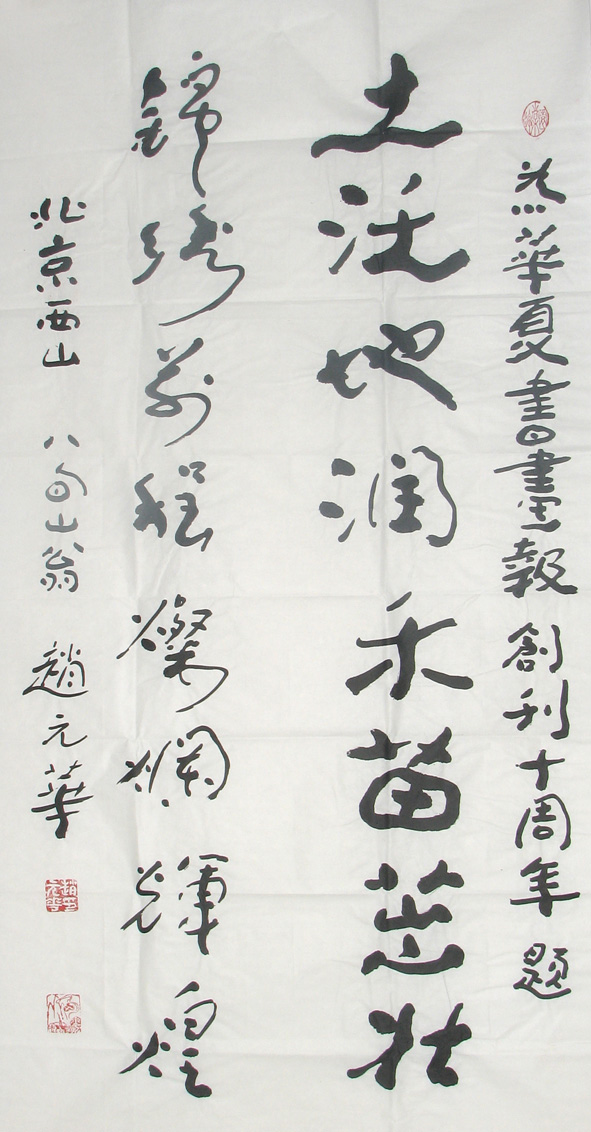 為華夏書畫報創刊十周年題
土沃地润禾苗茁壮
錦绣前程燦爛輝煌
北京西山 八旬山翁 趙元華